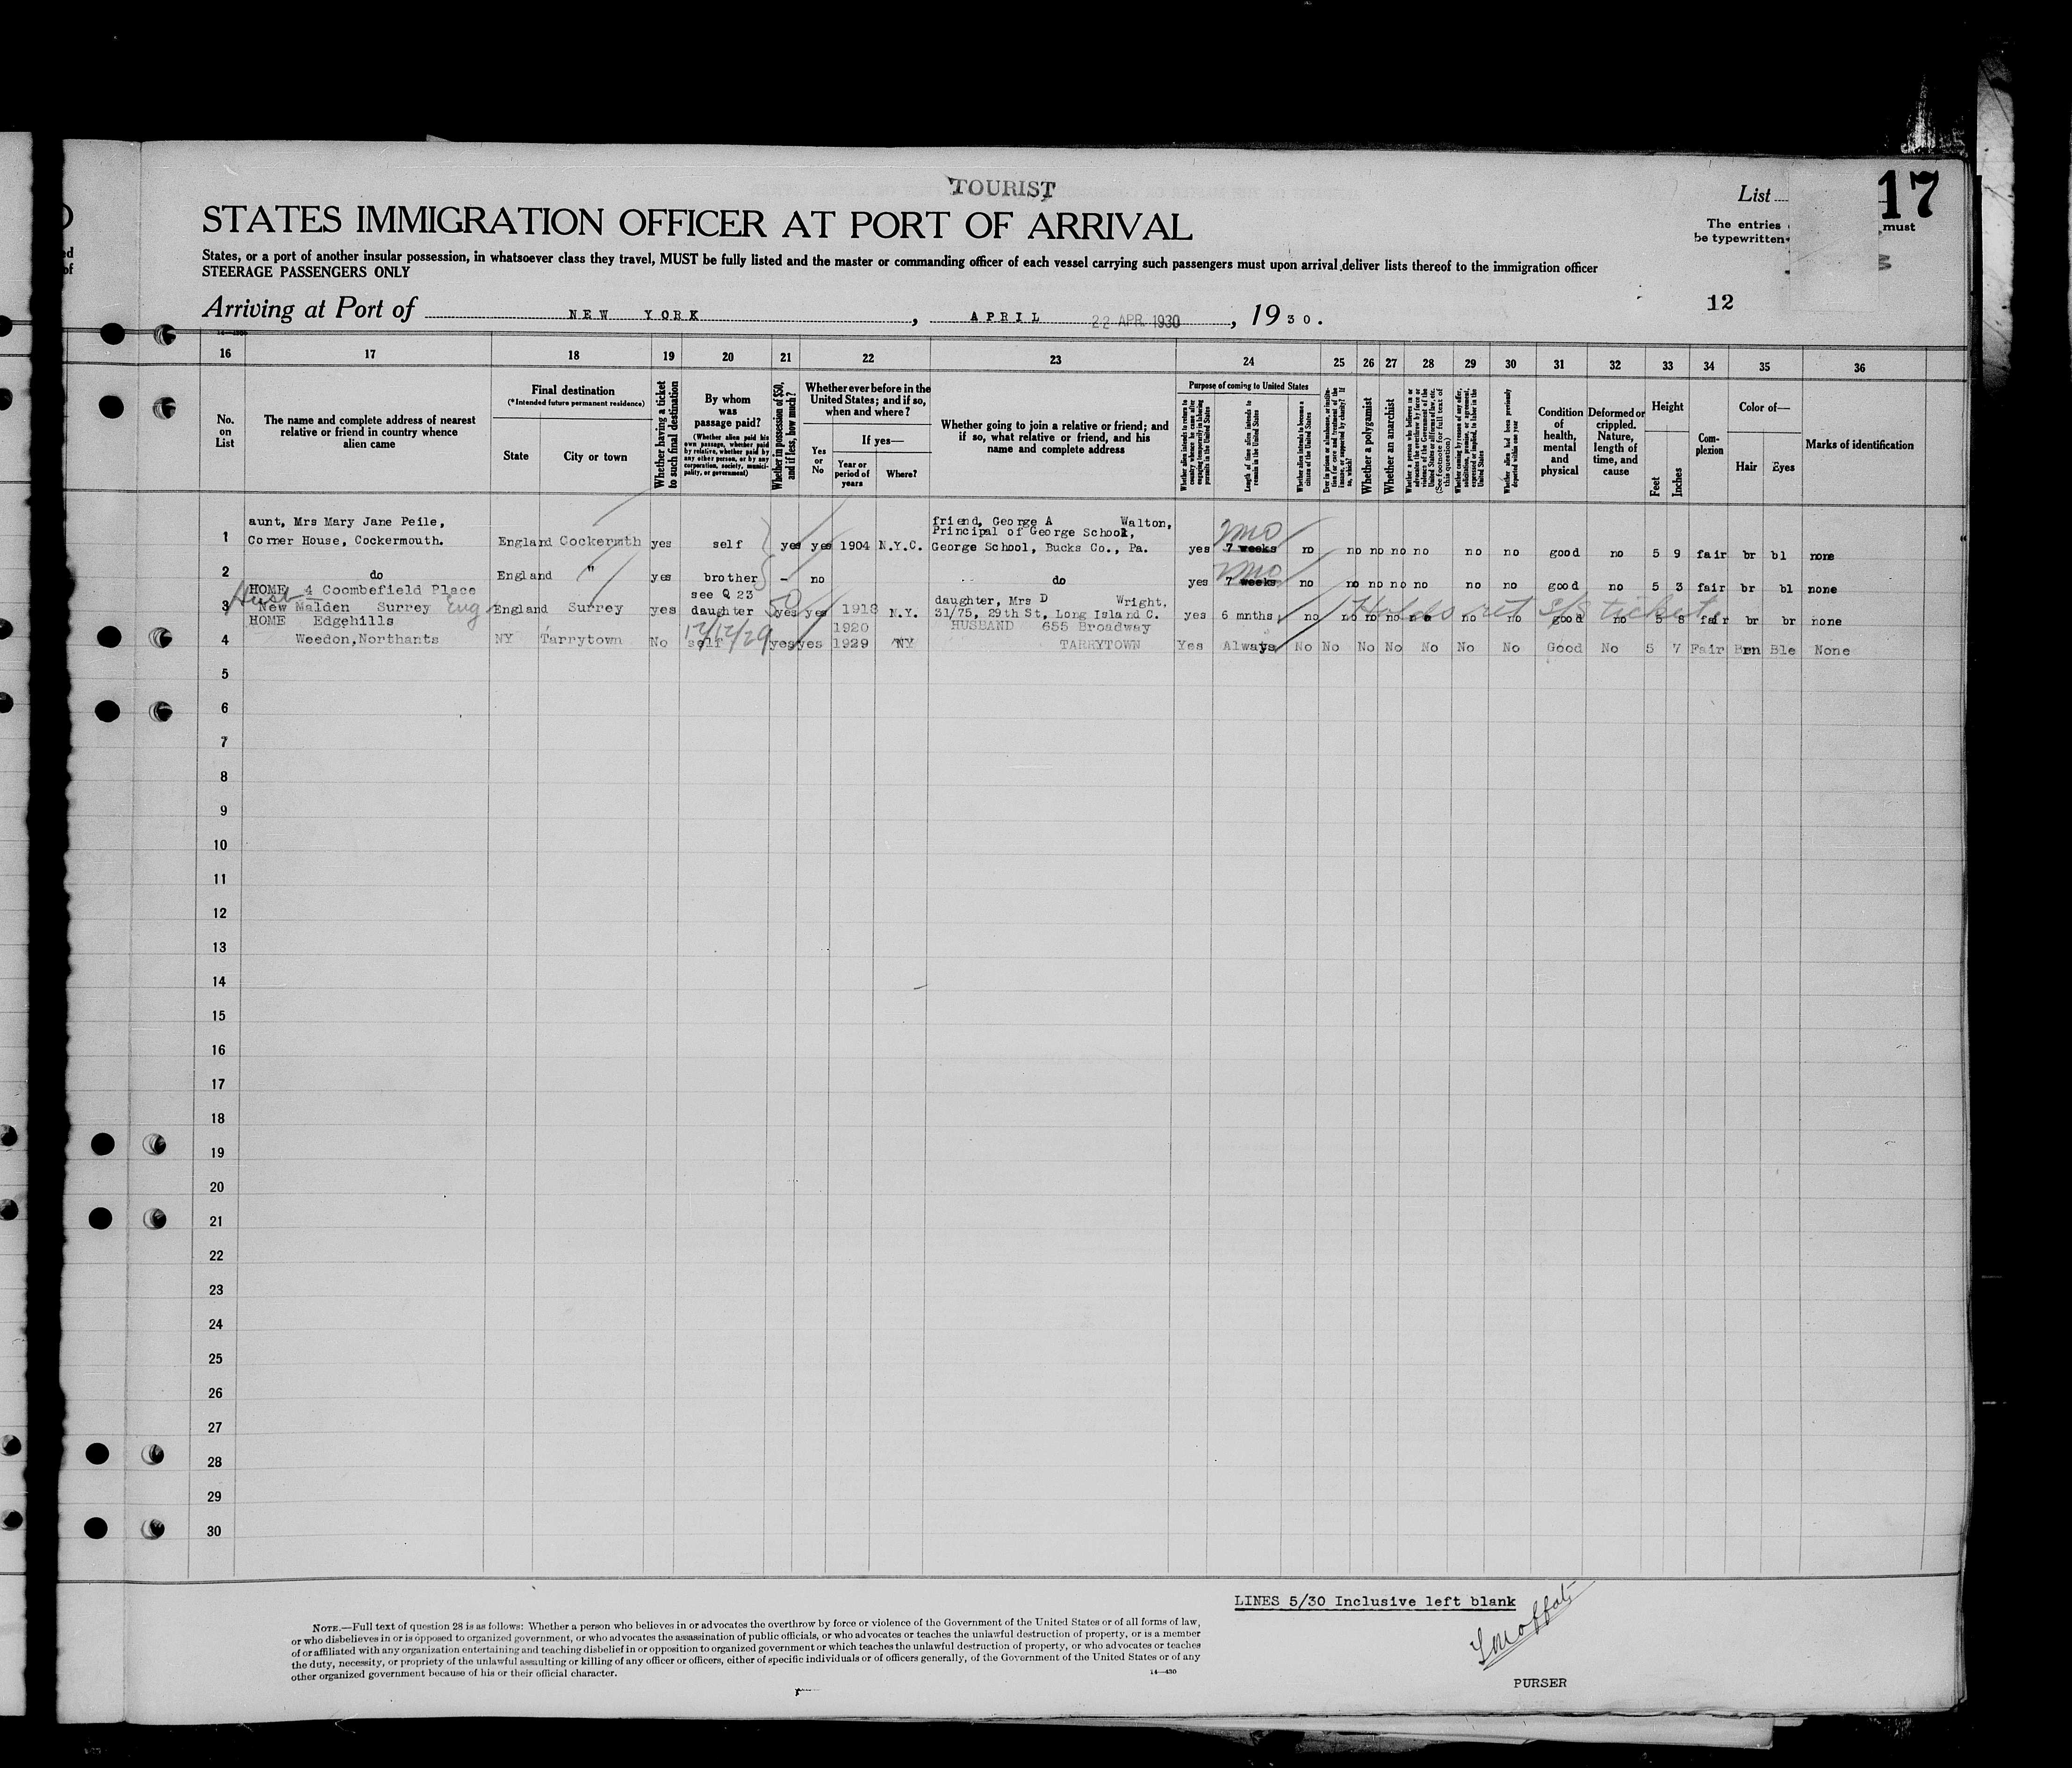 TOURIST
STATES IMMIGRATION OFFICER AT PORT OF ARRIVAL
List
17
The entries must
be typewritten
States, or a port of another insular possession, in whatsoever class they travel, MUST be fully listed and the master or commanding officer of each vessel carrying such passengers must upon arrival deliver lists thereof to the immigration officer
STEERAGE PASSENGERS ONLY
12
Arriving at Port of NEW YORK, APRIL 22 APR 1930, 1930.
16 17 18 19 20 21 22 23 24 25 26 27 28 29 30 31 32 33 34 35 36
No. on List
The name and complete address of nearest relative or friend in country whence alien came
Final destination
(*Intended future permanent residence)
State
City or town
Whether having a ticket to such final destination
By whom was passage paid?
(Whether alien paid his own passage, whether paid by relative, whether paid by any other person, or by any corporation, society, municipality, or government)
Whether in possession of $50, and if less, how much?
Whether ever before in the United States; and if so, when and where?
Yes or No
If yes—
Year or period of years
Where?
Whether going to join a relative or friend; and if so, what relative or friend, and his name and complete address
Purpose of coming to United States
Whether alien intends to return to country whence he came after engaging temporarily in laboring pursuits in the United States
Length of time alien intends to remain in the United States
Whether alien intends to become a citizen of the United States
Whether a polygamist
Whether an anarchist
Condition of health, mental and physical
Deformed or crippled. Nature, length of time, and cause
Height
Feet
Inches
Complexion
Color of—
Hair
Eyes
Marks of identification
1 aunt, Mrs Mary Jane Peile, Corner House, Cockermouth. England Cockermth yes self yes yes 1904 N.Y.C. friend, George A Walton, Principal of George School, George School, Bucks Co., Pa. yes 2mo 7 weeks no no no no no no no good no 5 9 fair br bl none
2 do England " yes brother – no do yes 2mo 7 weeks no no no no no no no good no 5 3 fair br bl none
3 HOME 4 Coombefield Place New Malden Surrey Eng England Surrey yes see Q 23 daughter 50 yes yes 1918 N.Y. daughter, Mrs D Wright, 31/75, 29th St, Long Island C. yes 6 mnths no no no no no no no good no 5 8 fair br br none
Holds ret s/s ticket
4 HOME Edgehills Weedon, Northants NY Tarrytown No 12/12/29 self yes yes 1920 1929 NY HUSBAND 655 Broadway TARRYTOWN Yes Always No No No No No No No Good No 5 7 Fair Brn Ble None
5
6
7
8
9
10
11
12
13
14
15
16
17
18
19
20
21
22
23
24
25
26
27
28
29
30
LINES 5/30 Inclusive left blank
NOTE.—Full text of question 28 is as follows: Whether a person who believes in or advocates the overthrow by force or violence of the Government of the United States or of all forms of law,
or who disbelieves in or is opposed to organized government, or who advocates the assassination of public officials, or who advocates or teaches the unlawful destruction of property, or is a member
of or affiliated with any organization entertaining and teaching disbelief in or opposition to organized government or which teaches the unlawful destruction of property, or who advocates or teaches
the duty, necessity, or propriety of the unlawful assaulting or killing of any officer or officers, either of specific individuals or of officers generally, of the Government of the United States or of any
other organized government because of his or their official character.
14—430
PURSER